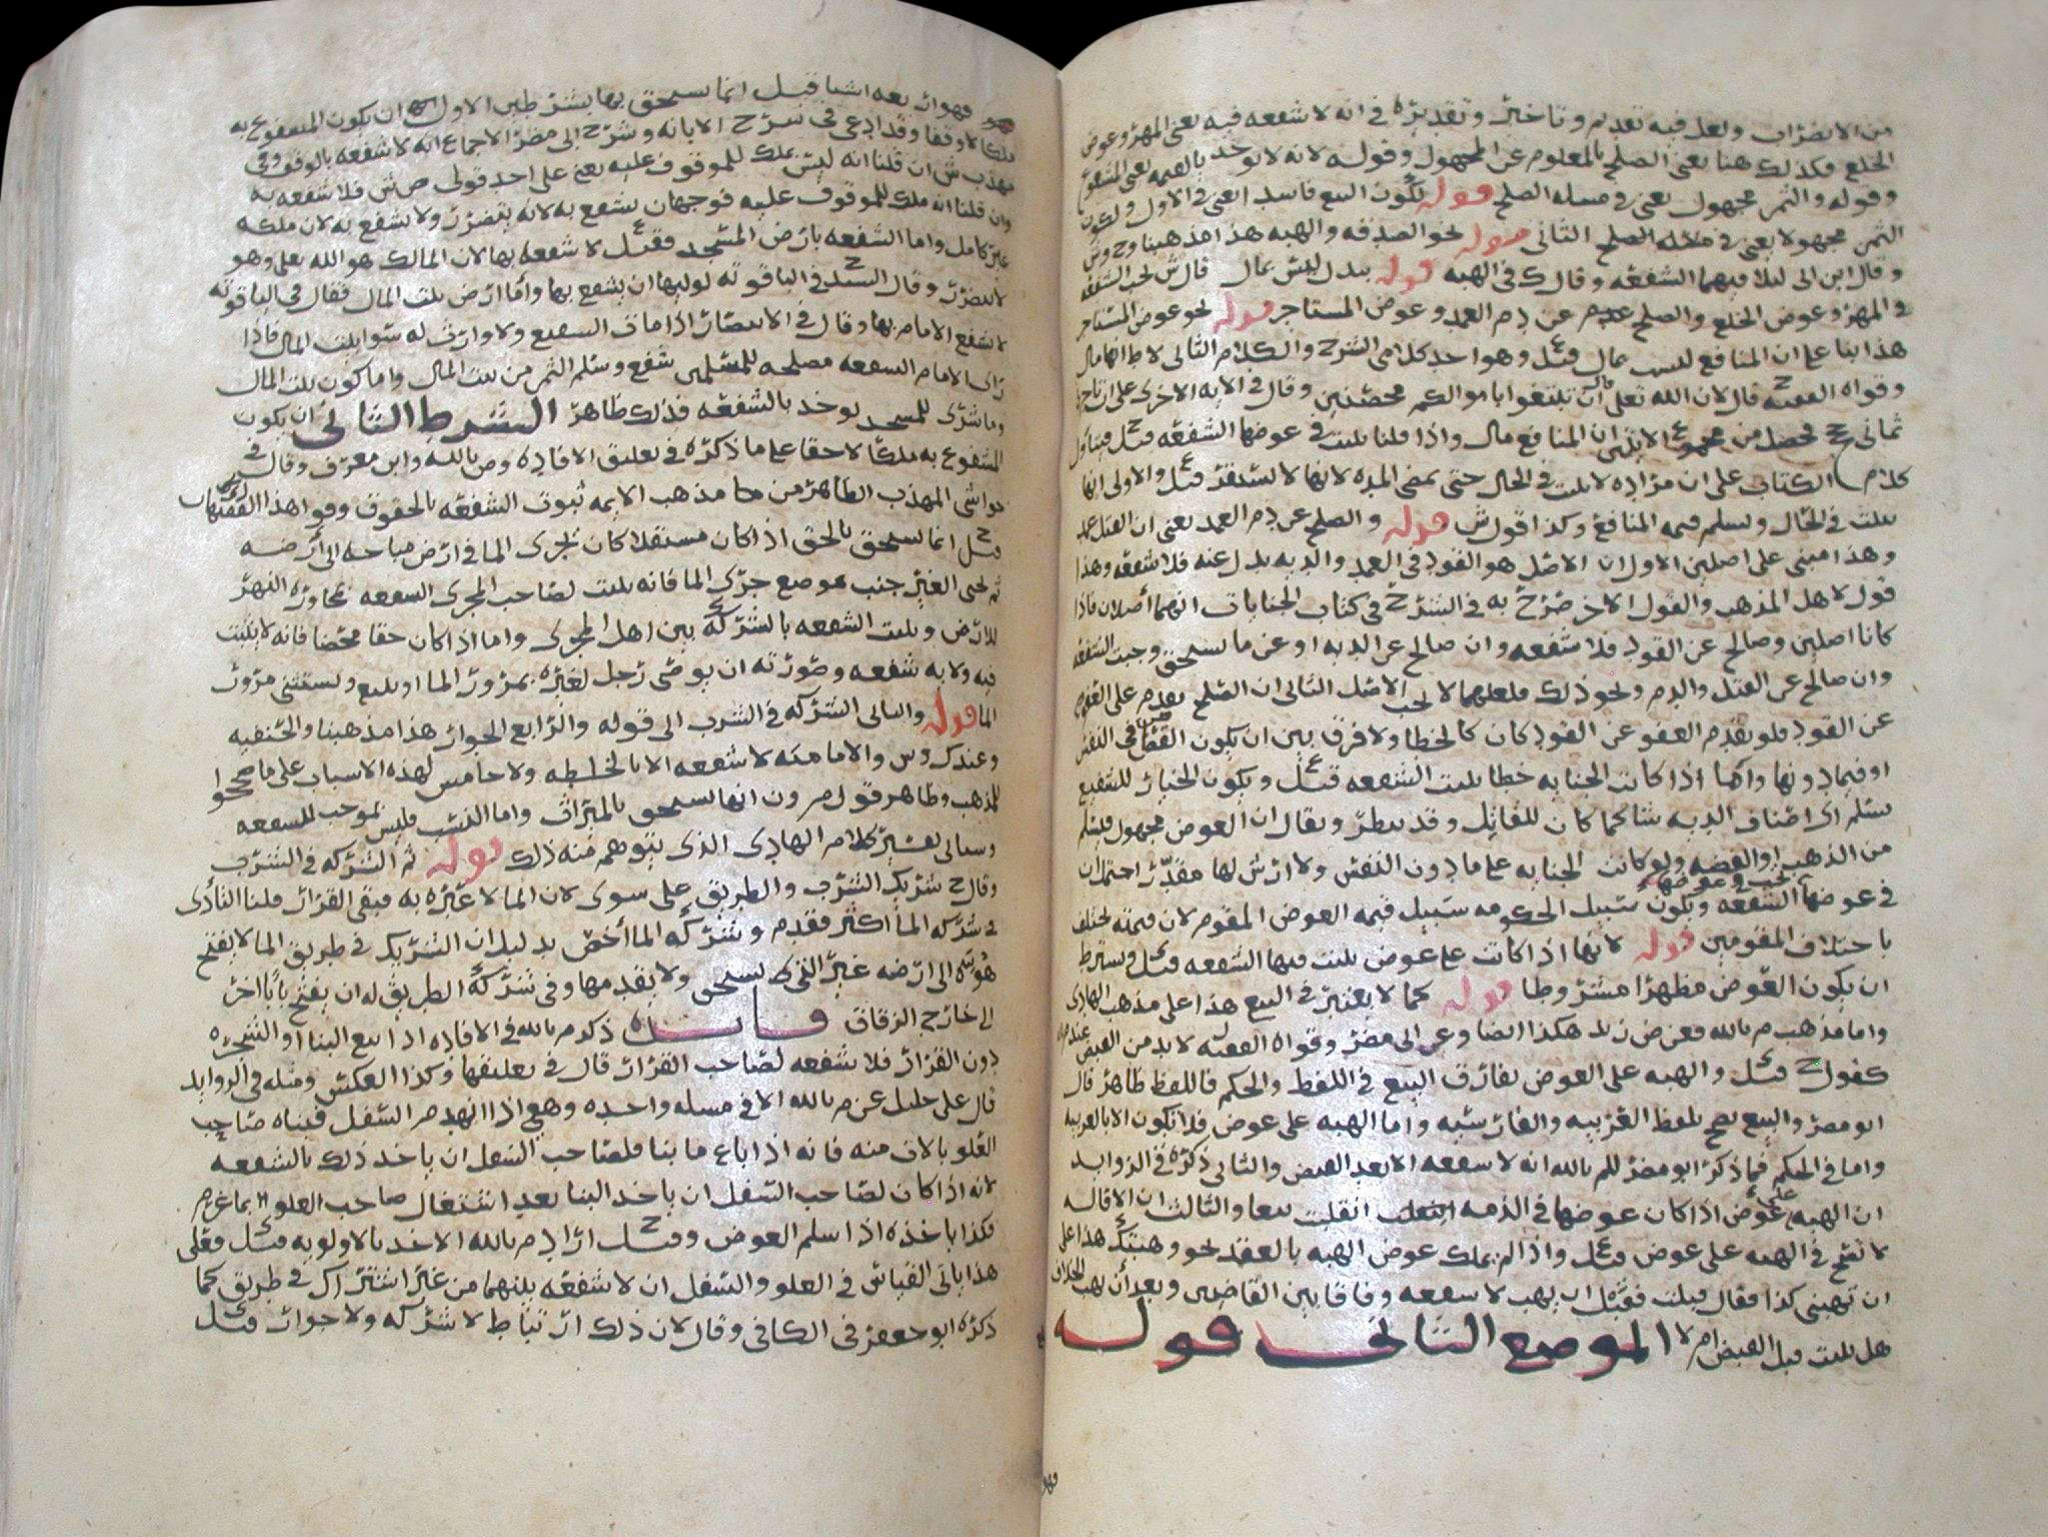 من الاضراب ولعل فيه تقديم وتاخير وتقديره في انه لا شفعه فيه يعني المهر وعوض
الخلع فكذلك هنا يعني الصلح بالمعلوم عن المجهول وقوله لانه لا يوخذ بالقيمه يعني المشفوع
وقوله والثمن مجهول يعني في مسله الصلح قوله لكون البيع فاسد ايعني في الاول ولكون
الثمن مجهولا يعني في مسله الصلح الثاني قوله نحو الصدقه والهبه هذا مذهبنا وح وش
وقال ابن ابي ليلا فيهما الشفعه وقال ك في الهبه قوله ببدل ليس بمال قال ش تجب الشفعه
في المهر وعوض الخلع والصلح عن دم العمد وعوض المستاجر قوله نحو عوض المستاجر
هذا بنا على ان المنافع ليست بمال قيل وهو احد كلامي الشرح والكلام الثاني لا ط انها مال
وقواه الفقيه ح قال لان الله تعلى قال ان تبتغوا باموالكم محصنين وقال في الايه الاخرى على ان تاجرني
ثماني حجج فحصل من مجموع الايتين ان المنافع مال واذا قلنا يثبت في عوضها الشفعه قيل فيتاول
كلام الكتاب على ان مراده لا يثبت في الحال حتى تمضي المده لانها لا تستقر قيل والاولى انها
تثبت في الحال ويسلم قيمه المنافع وكذا قول ش قوله والصلح عن دم العمد يعني ان القتل عمد
وهذا مبني على اصلين الاول ان الاصل هو القود في العمد والديه بدل عنه فلا شفعه وهذا
قول لاهل المذهب والقول الاخر صرح به في الشرح في كتاب الجنايات انهما أصلان فاذا
كانا اصلين وصالح عن القود فلا شفعه وان صالح عن الديه او عن ما يستحق وجبت الشفعه
وان صالح عن القتل والدم ونحو ذلك فلعلهما لا تجب الاصل الثاني ان الصلح يقدم على العفو
عن القود فلو تقدم العفو عن القود كان كالخطا ولا فرق بين ان يكون القصاص في النفس
او فيما دونها واما اذا كانت الجنايه خطا يثبت الشفعه قيل ويكون الخيار للشفيع
يسلم اي اصناف الديه شا كما كان للقاتل وقد ينظر ويقال ان العوض مجهول فيسلم
من الذهب او الفضه ولو كانت الجنايه على ما دون النفس ولا ارش لها مقدر احتمل ان
تجب في عوضها الشفعه ويكون سبيل الحكومه سبيل قيمه العوض المقوم لان قيمته تختلف
باختلاف المقومين قوله لانها اذا كانت على عوض يثبت فيها الشفعه قيل ويشترط
ان يكون العوض مظهرا مشروطا قوله كما لا يعتبر في البيع هذا على مذهب الهادي
واما مذهب م بالله فعن ض زيد هكذا ايضا وعن ابي مضر وقواه الفقيه ل لا بد من القبض عند م بالله
كقول ح قيل والهبه على العوض يفارق البيع في اللفظ والحكم فاللفظ ظاهر قال
ابو مضر والبيع يصح بلفظ العربيه والفارسيه واما الهبه على عوض فلا تكون الا بالعربيه
واما في الحكم فما ذكر ابو مضر للم بالله انه لا شفعه الا بعد القبض والثاني ذكره في الزوايد
ان الهبه على عوض اذا كان عوضها في الذمه انقلبت بيعا والثالث ان الاقاله
لا تصح في الهبه على عوض قيل واذا لم يملك عوض الهبه بالعقد نحو وهبتك هذا على
ان تهبني كذا فقال قبلت فقيل ان يهب لا شفعه وفاقا بين القاضيين وبعد أن يهب الخلاف
هل يثبت قبل القبض ام لا الموضع الثاني قوله
فهو
فهو اربعه اشيا قيل انما يستحق بها بشرطين الاول ان يكون المشفوع به
ملكا لا وقفا وقد ادعى في شرح الابانه وشرح ابي مضر الاجماع انه لا شفعه بالوقف وفي
مهذب ش ان قلنا انه ليس بملك للموقوف عليه يعني على احد قولي ص ش فلا شفعه به
وان قلنا انه ملك للموقوف عليه فوجهان يشفع به لانه يتضرر ولا يشفع به لان ملكه
غير كامل واما الشفعه بارض المسجد فقيل لا شفعه بها لان المالك هو الله تعلى وهو
لا يتضرر وقال السيد ح في الياقوته لوليها ان يشفع بها وأما ارض بيت المال فقال في الياقوته
لا يشفع الامام بها وقال في الانتصار اذا مات الشفيع ولا وارث له سوا بيت المال فاذا
راى الامام الشفعه مصلحه للمسلمين شفع وسلم الثمن من بيت المال واما كون بيت المال
وما شري للمسجد يوخذ بالشفعه فذلك ظاهر الشرط الثاني ان يكون
المشفوع به ملكا لا حقا على ما ذكره في تعليق الافاده وص بالله وابن معرف وقال في
حواشي المهذب الظاهر من مذهب الايمه ثبوت الشفعه بالحقوق وقوا هذا الفقيهان
قيل ح انما يستحق بالحق اذا كان مستقلا كان يجري الما في ارض مباحه الى أرضه
ثم يحيي الغير جنب موضع جري الما فانه يثبت لصاحب المجرى الشفعه بمجاوره النهر
للارض ويثبت الشفعه بالشركه بين اهل المجرى واما اذا كان حقا محضا فانه لا يثبت
فيه ولا به شفعه وصورته ان يوصي رجل لغيره بمرور الما او يبيع ويستثني مرور
الما قوله والثاني الشركه في الشرب الى قوله والرابع الجوار هذا مذهبنا والحنفيه
وعند ك وش والاماميه لا شفعه الا بالخلطه ولا خامس لهذه الاسباب على ما صححوا
للمذهب وظاهر قول م ون انها تستحق بالميراث واما النسب فليس بموجب للشفعه
وسياتي تفسير كلام الهادي الذي يتوهم منه ذلك قوله ثم الشركه في الشرب
وقال ح شريك الشرب والطريق على سوى لان الما لا عبره به فبقي القرار قلنا التأذي
في شركه الما أكثر فقدم وشركه الما أخص بدليل ان الشريك في طريق الما لا يفتح
هوته الى ارضه غير التي تستحق ولا يقدمها وفي شركه الطريق له ان يفتح بابا اخر
الى خارج الزقاق فايده ذكر م بالله في الافاده اذا بيع البنا او الشجره
دون القرار فلا شفعه لصاحب القرار قال في تعليقها وكذا العكس ومثله في الزوايد
قال علي خليل عن م بالله الا في مسله واحده وهي اذا انهدم السفل فبناه صاحب
العلو بالاذن منه فانه اذا باع ما بنا فلصاحب السفل ان ياخذ ذلك بالشفعه
لانه اذا كان لصاحب السفل ان ياخذ البنا بعد اشتغال صاحب العلو بما غرم
فكذا ياخذه اذا سلم العوض وقيل ح اراد م بالله الاخذ بالاولويه قيل فعلى
هذا ياتي القياس في العلو والسفل ان لا شفعه بينهما من غير اشتراك في طريق كما
ذكره ابو جعفر في الكافي وقال لان ذلك ارتباط لا شركه ولا جوار قيل